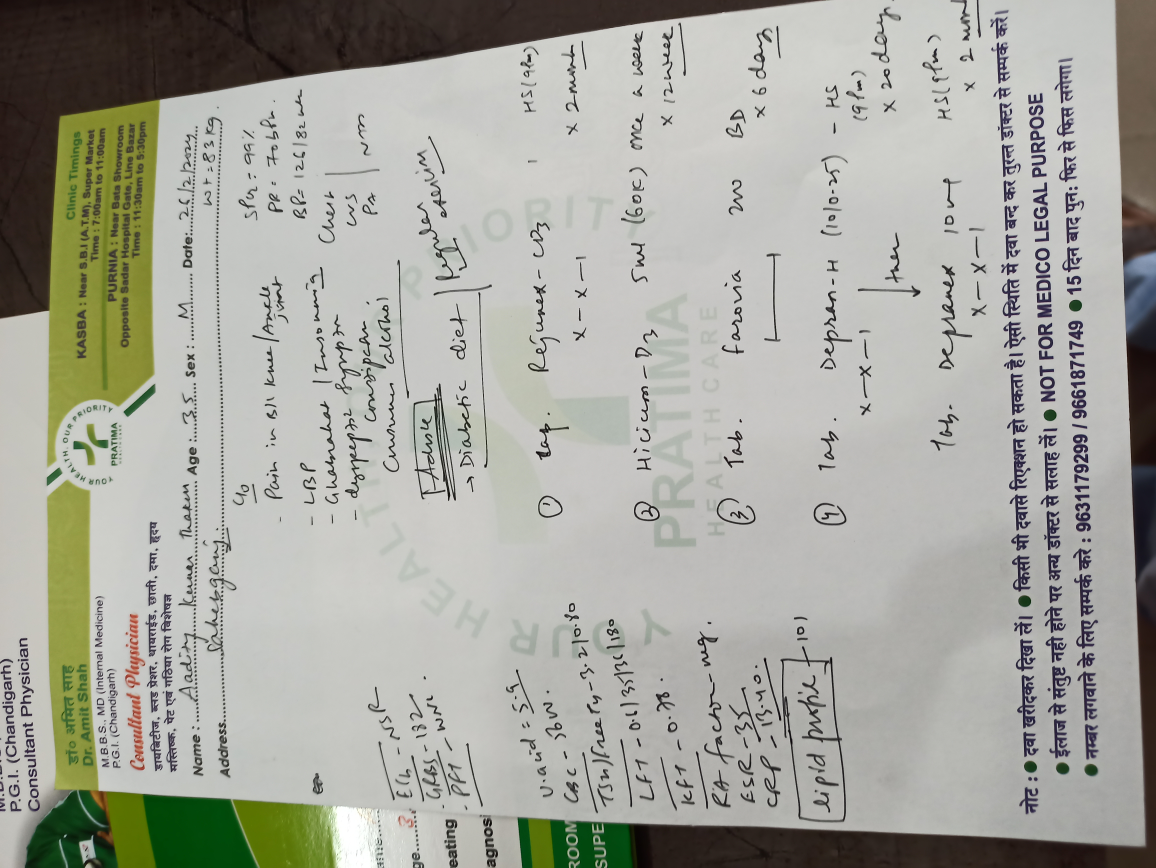 डा० अमित साह
Dr. Amit Shah
M.B.B.S., MD (Internal Medicine)
P.G.I. (Chandigarh)
Consultant Physician
डायबिटीज, ब्लड प्रेशर, थायराईड, छाती, दमा, हृदय
मस्तिष्क, पेट एवं गठिया रोग विशेषज्ञ
YOUR HEALTH, OUR PRIORITY
PRATIMA
Clinic Timings
KASBA : Near S.B.I (A.T.M), Super Market
Time : 7:00am to 11:00am
PURNIA : Near Bata Showroom
Opposite Sadar Hospital Gate, Line Bazar
Time : 11:30am to 5:30pm
Name : Aaditya Kumar Age : 35 Sex : M Date: 26/2/2024
Address
Wt = 83 Kg.
C/o
- Pain in B/L Knee/Ankle joint
- LBP
- Ghabrahat / Insomnia
- dyspepsia symptom
constipation
alcohol
SPO2 = 99%
PR = 70 bpm
BP = 126/80
Chest
CVS
PA
NVS
Advise
→ Diabetic diet / Regular exercise
ECG - NSR
GRBS - 132
PFT - WNL.
U. acid = 5.9
CBC -
TSH/Free T4 - 3.2/0.80
LFT -
KFT - 0.78.
RA factor - neg.
ESR - 35
CRP - 13.40.
lipid profile - 101
① Tab. Rejunex - CD3 1 HS (9 Pm)
x - x - 1 x 2 month
② Hicicum - D3 5ml (60K) once a week
x 12 week
③ Tab. Farovia 200 BD
x 6 day
④ Tab. Depran - H (10/0.25) - HS
x - x - 1 (9 Pm)
x 20 day.
↓ then
Tab. Depranex 10 mg HS (9 Pm)
x - x - 1 x 2 month
YOUR HEALTH OUR PRIORITY
PRATIMA
HEALTHCARE
नोट : ● दवा खरीदकर दिखा लें। ● किसी भी दवासे रिएक्शन हो सकता है। ऐसी स्थिति में दवा बन्द कर तुरन्त डॉक्टर से सम्पर्क करें।
● ईलाज से संतुष्ट नही होने पर अन्य डॉक्टर से सलाह लें। ● NOT FOR MEDICO LEGAL PURPOSE
● नम्बर लगवाने के लिए सम्पर्क करे : 9631179299 / 9661871749 ● 15 दिन बाद पुन: फिर से फिस लगेगा।
P.G.I. (Chandigarh)
Consultant Physician